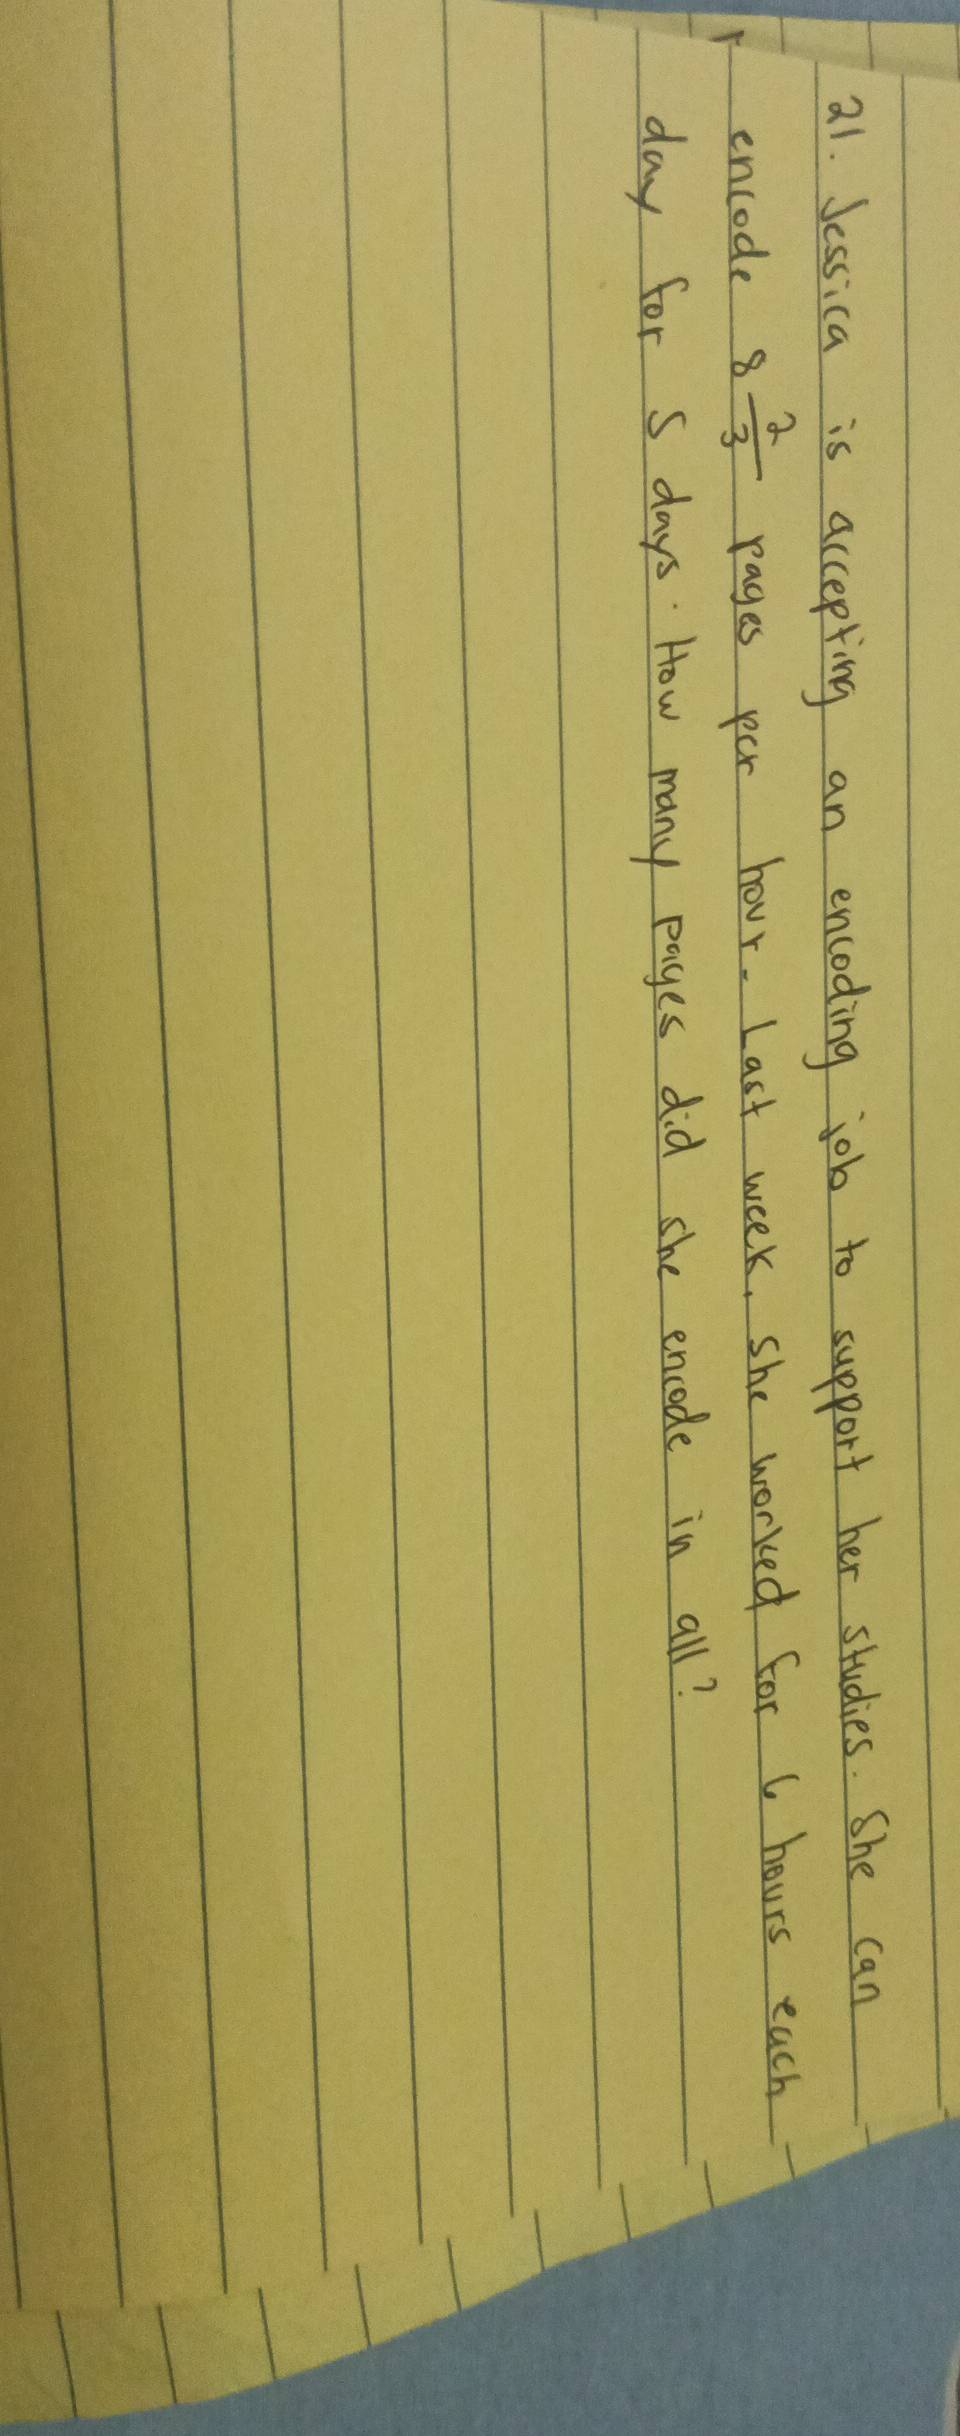 21. Jessica is accepting an encoding job to support her studies. She can
encode 8 2/3 pages per hour. Last week, she worked for 6 hours each
day for 5 days. How many pages did she encode in all?